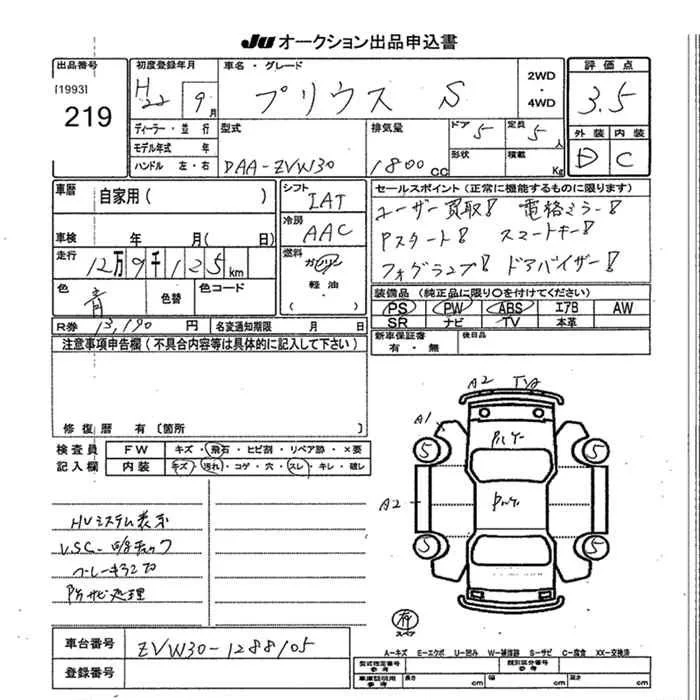 JU オークション出品申込書
出品番号
[1993]
219
初度登録年月
H22 9月
車名・グレード
プリウス S
2WD
・
4WD
評価点
3.5
外装 内装
D C
ディーラー・並行
モデル年式 年
ハンドル 左・右
型式
DAA-ZVW30
排気量
1800cc
ドア 5
定員 5人
形状
積載 Kg
車歴
自家用( )
車検 年 月( 日)
走行 12万9千125km
色 青 色替 色コード
R券 13,190円 名変通知期限 月 日
シフト
IAT
冷房
AAC
燃料
ガソリン
軽油
( )
セールスポイント(正常に機能するものに限ります)
ユーザー買取! 電格ミラー!
Pスタート! スマートキー!
フォグランプ! ドアバイザー!
装備品(純正品に限り〇を付けてください)
PS PW ABS エアB AW
SR ナビ TV 本革
新車保証書
有・無
後日品
注意事項申告欄(不具合内容等は具体的に記入して下さい)
修復歴 有〔箇所 〕
検査員
記入欄
FW キズ・飛石・ヒビ割・リペア跡・×要
内装 キズ・汚れ・コゲ・穴・スレ・キレ・破レ
HVシステム表示
VSC
ブレーキ
防サビ処理
A2
A1
A2
5
5
5
5
有
スペア
車台番号 ZVW30-1288105
登録番号
A-キズ E-エクボ U-凹み W-補修跡 S-サビ C-腐食 XX-交換済
型式指定番号
参考
類別区分番号
参考
車庫証明用
参考
長さ cm
幅 cm
高さ cm